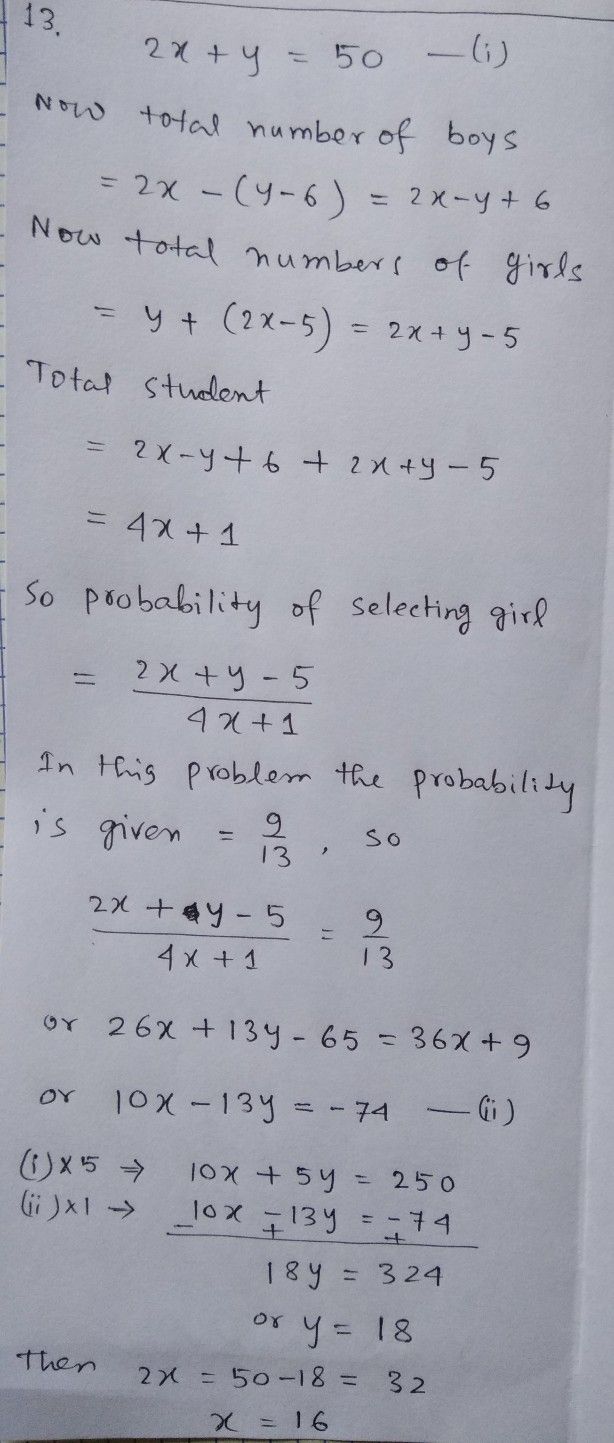 13.
2x + y = 50 —(i)
Now total number of boys
= 2x - (y-6) = 2x-y+6
Now total numbers of girls
= y + (2x-5) = 2x+y-5
Total student
= 2x-y+6 + 2x+y-5
= 4x+1
So probability of selecting girl
= (2x+y-5)/(4x+1)
In this problem the probability
is given = 9/13, so
(2x+y-5)/(4x+1) = 9/13
or 26x+13y-65=36x+9
or 10x-13y=-74 —(ii)
(i)×5 ⇒ 10x+5y = 250
(ii)×1 → 10x-13y = -74
- + +
18y = 324
or y = 18
Then 2x = 50-18 = 32
x = 16